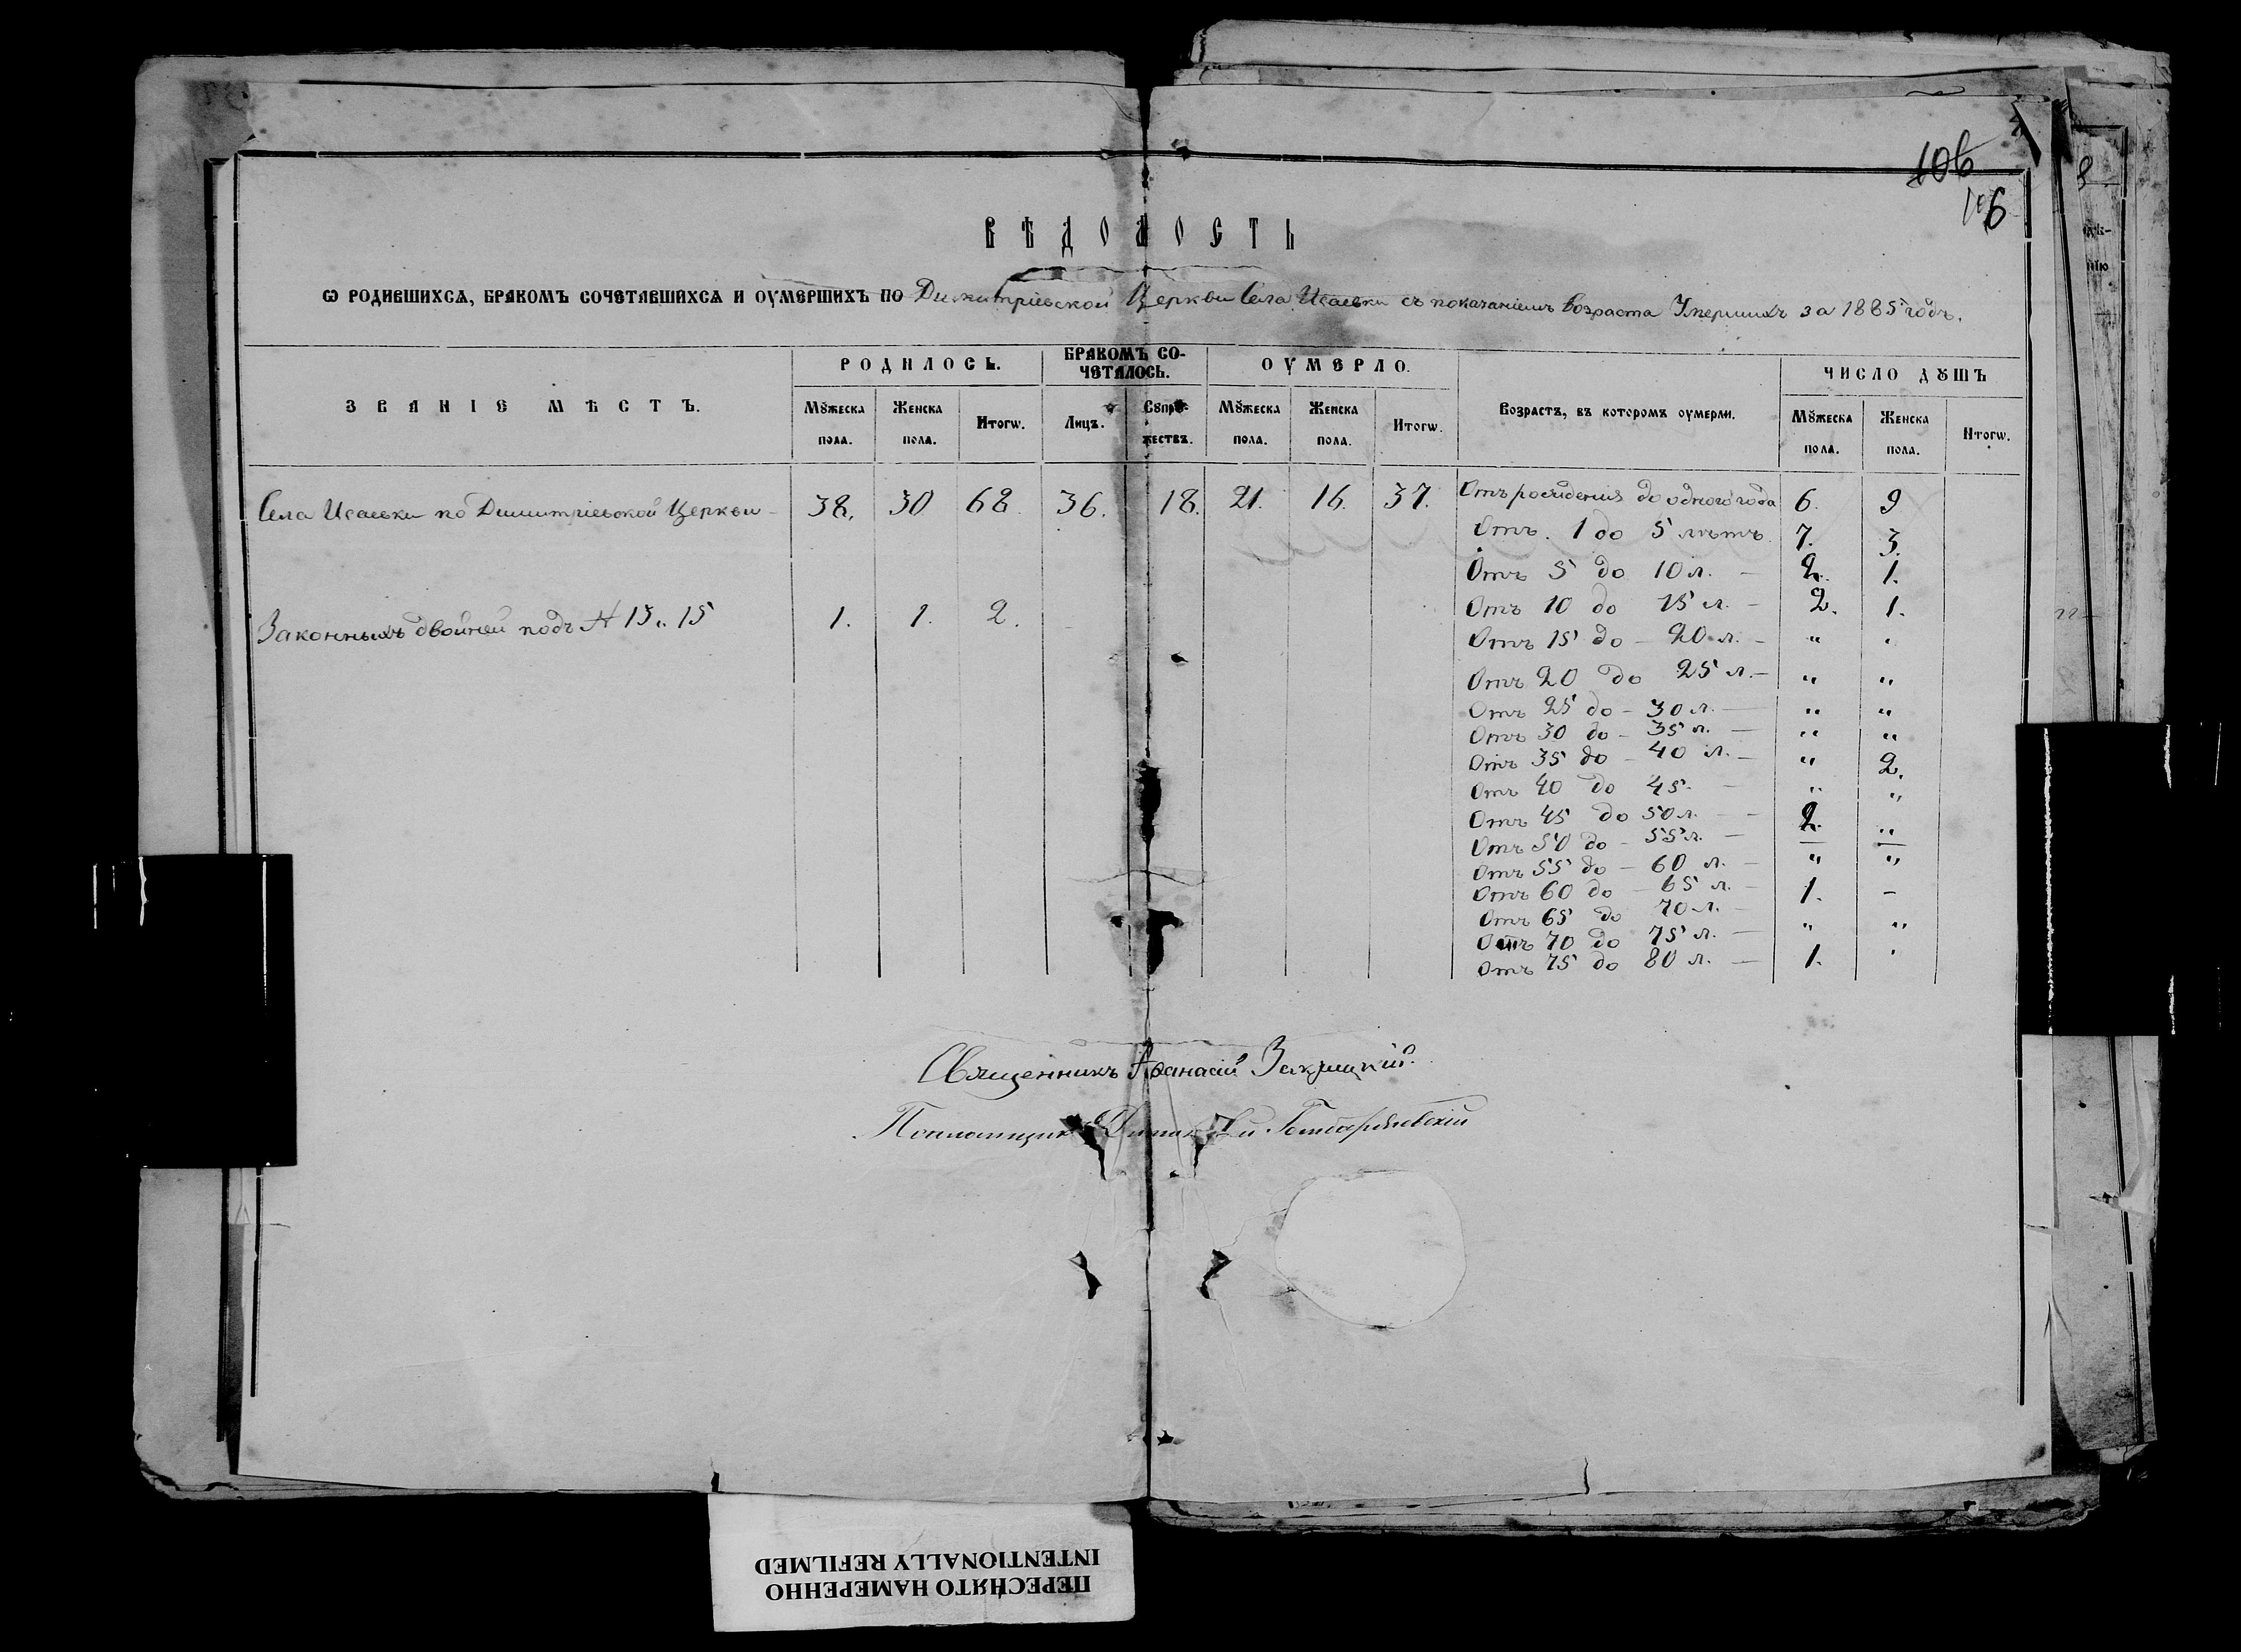 106
106
ВѢДОМОСТЬ
Ѡ РОДИВШИХСѦ, БРАКОМЪ СОЧЕТАВШИХСѦ И ОУМЕРШИХЪ ПО Димитріевской Церкви Села Исаевки съ показаніемъ Возраста Умершихъ за 1885 годъ.
ЗВАНІЕ МѢСТЪ.
РОДИЛОСЬ.
БРАКОМЪ СО-
ЧЕТАЛОСЬ.
ОУМЕРЛО.
Возрастъ, въ которомъ оумерли.
ЧИСЛО ДꙊШЪ
Мꙋжеска пола. Женска пола. Итогѡ. Лицъ. Сꙋпрꙋ-жествъ. Мꙋжеска пола. Женска пола. Итогѡ. Мꙋжеска пола. Женска пола. Итогѡ.
Села Исаевки по Димитріевской Церкви – 38. 30 68 36. 18. 21. 16. 37. Отъ рожденія до одного года 6. 9
Отъ 1 до 5 лѣтъ 7. 3.
Отъ 5 до 10 л. – 2. 1.
Законныхъ двойней подъ № 13 и 15 1. 1. 2. Отъ 10 до 15 л. – 2. 1.
Отъ 15 до – 20 л. – " "
Отъ 20 до 25 л. – " "
Отъ 25 до – 30 л. — " "
Отъ 30 до – 35 л. — " "
Отъ 35 до – 40 л. – " 2.
Отъ 40 до 45. – " "
Отъ 45 до 50 л. – 2. "
Отъ 50 до – 55 л. — – –
Отъ 55 до – 60 л. – " "
Отъ 60 до – 65 л. – 1. –
Отъ 65 до 70 л. – " "
Отъ 70 до 75 л. —
Отъ 75 до 80 л. — 1. "
Священникъ Аѳанасій
ПЕРЕСНЯТО НАМЕРЕННО
INTENTIONALLY REFILMED